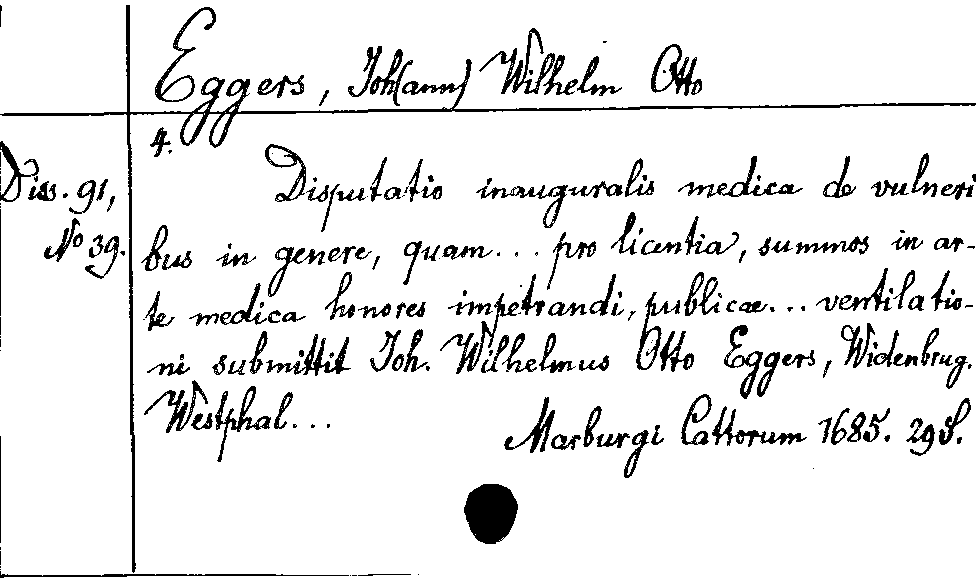 Eggers, Joh(ann) Wilhelm Otto
4.
Diss. 91,
No 39.
Disputatio inauguralis medica de vulneri
bus in genere, quam... pro licentia, summos in ar-
te medica honores impetrandi, publicae... ventilatio-
ni submittit Joh. Wilhelmus Otto Eggers, Widenbrug.
Westphal...
Marburgi Cattorum 1685. 29 S.